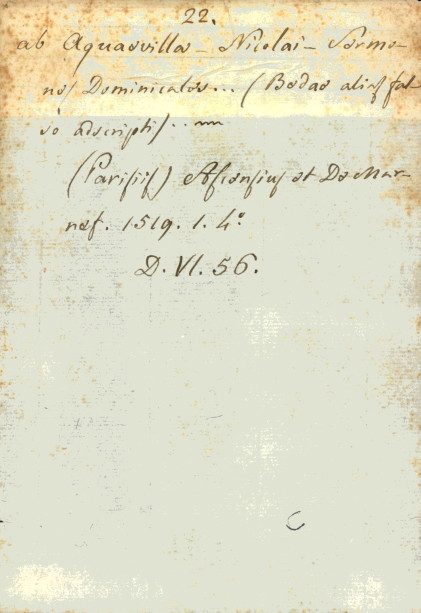 22.
ab Aquaevilla - Nicolai - Sermo-
nes Dominicales... (Bedae alias fal-
so adscripti)..
(Parisiis) Ascensius et De Mar-
nef. 1519. 1. 4º.
D. VI. 56.